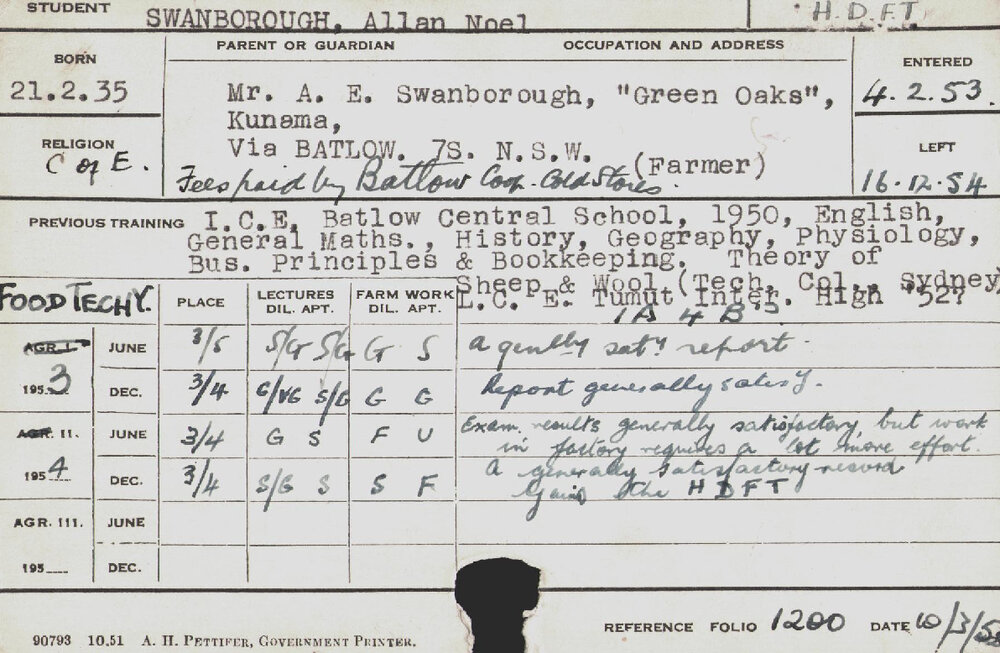 STUDENT SWANBOROUGH, Allan Noel H.D.F.T
BORN
21.2.35
RELIGION
C of E.
PARENT OR GUARDIAN OCCUPATION AND ADDRESS
Mr. A. E. Swanborough, "Green Oaks",
Kunama,
Via BATLOW. 7S. N.S.W. (Farmer)
Fees paid by Batlow Coop. Cold Stores.
ENTERED
4.2.53.
LEFT
16.12.54
PREVIOUS TRAINING I.C.E. Batlow Central School, 1950, English,
General Maths., History, Geography, Physiology,
Bus. Principles & Bookkeeping. Theory of
Sheep & Wool (Tech. Col., Sydney)
L.C. E. Tumut Inter. High '52?
1A 4B
FOOD TECHY. PLACE LECTURES FARM WORK
DIL. APT. DIL. APT.
AGR. I. JUNE 3/5 S/G S/G G S a genlly saty report.
1953 DEC. 3/4 G/VG S/G G G Report generally satisy.
AGR. II. JUNE 3/4 G S F U Exam. results generally satisfactory, but work
in factory requires a lot more effort.
1954 DEC. 3/4 S/G S S F A generally satisfactory record
Gains the HDFT
AGR. III. JUNE
195 DEC.
90793 10.51 A. H. PETTIFER, GOVERNMENT PRINTER.
REFERENCE FOLIO 1200 DATE 10/3/5